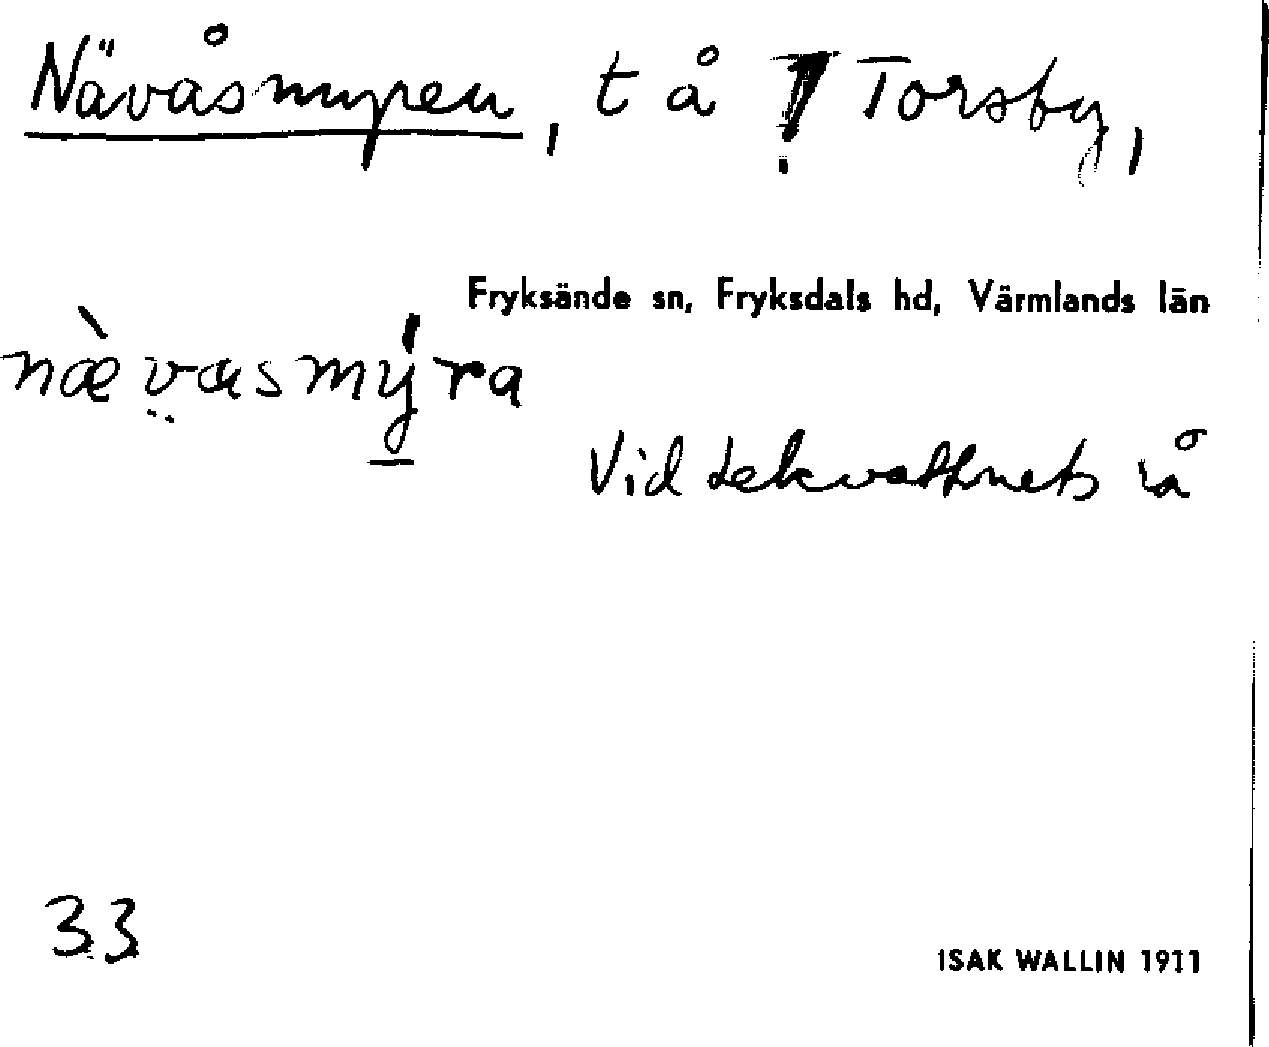 Nävåsmyren, t å Torsby,
Fryksände sn, Fryksdals hd, Värmlands län
næ̀vasmýra
Vid Lekvattnets å
33
ISAK WALLIN 1911